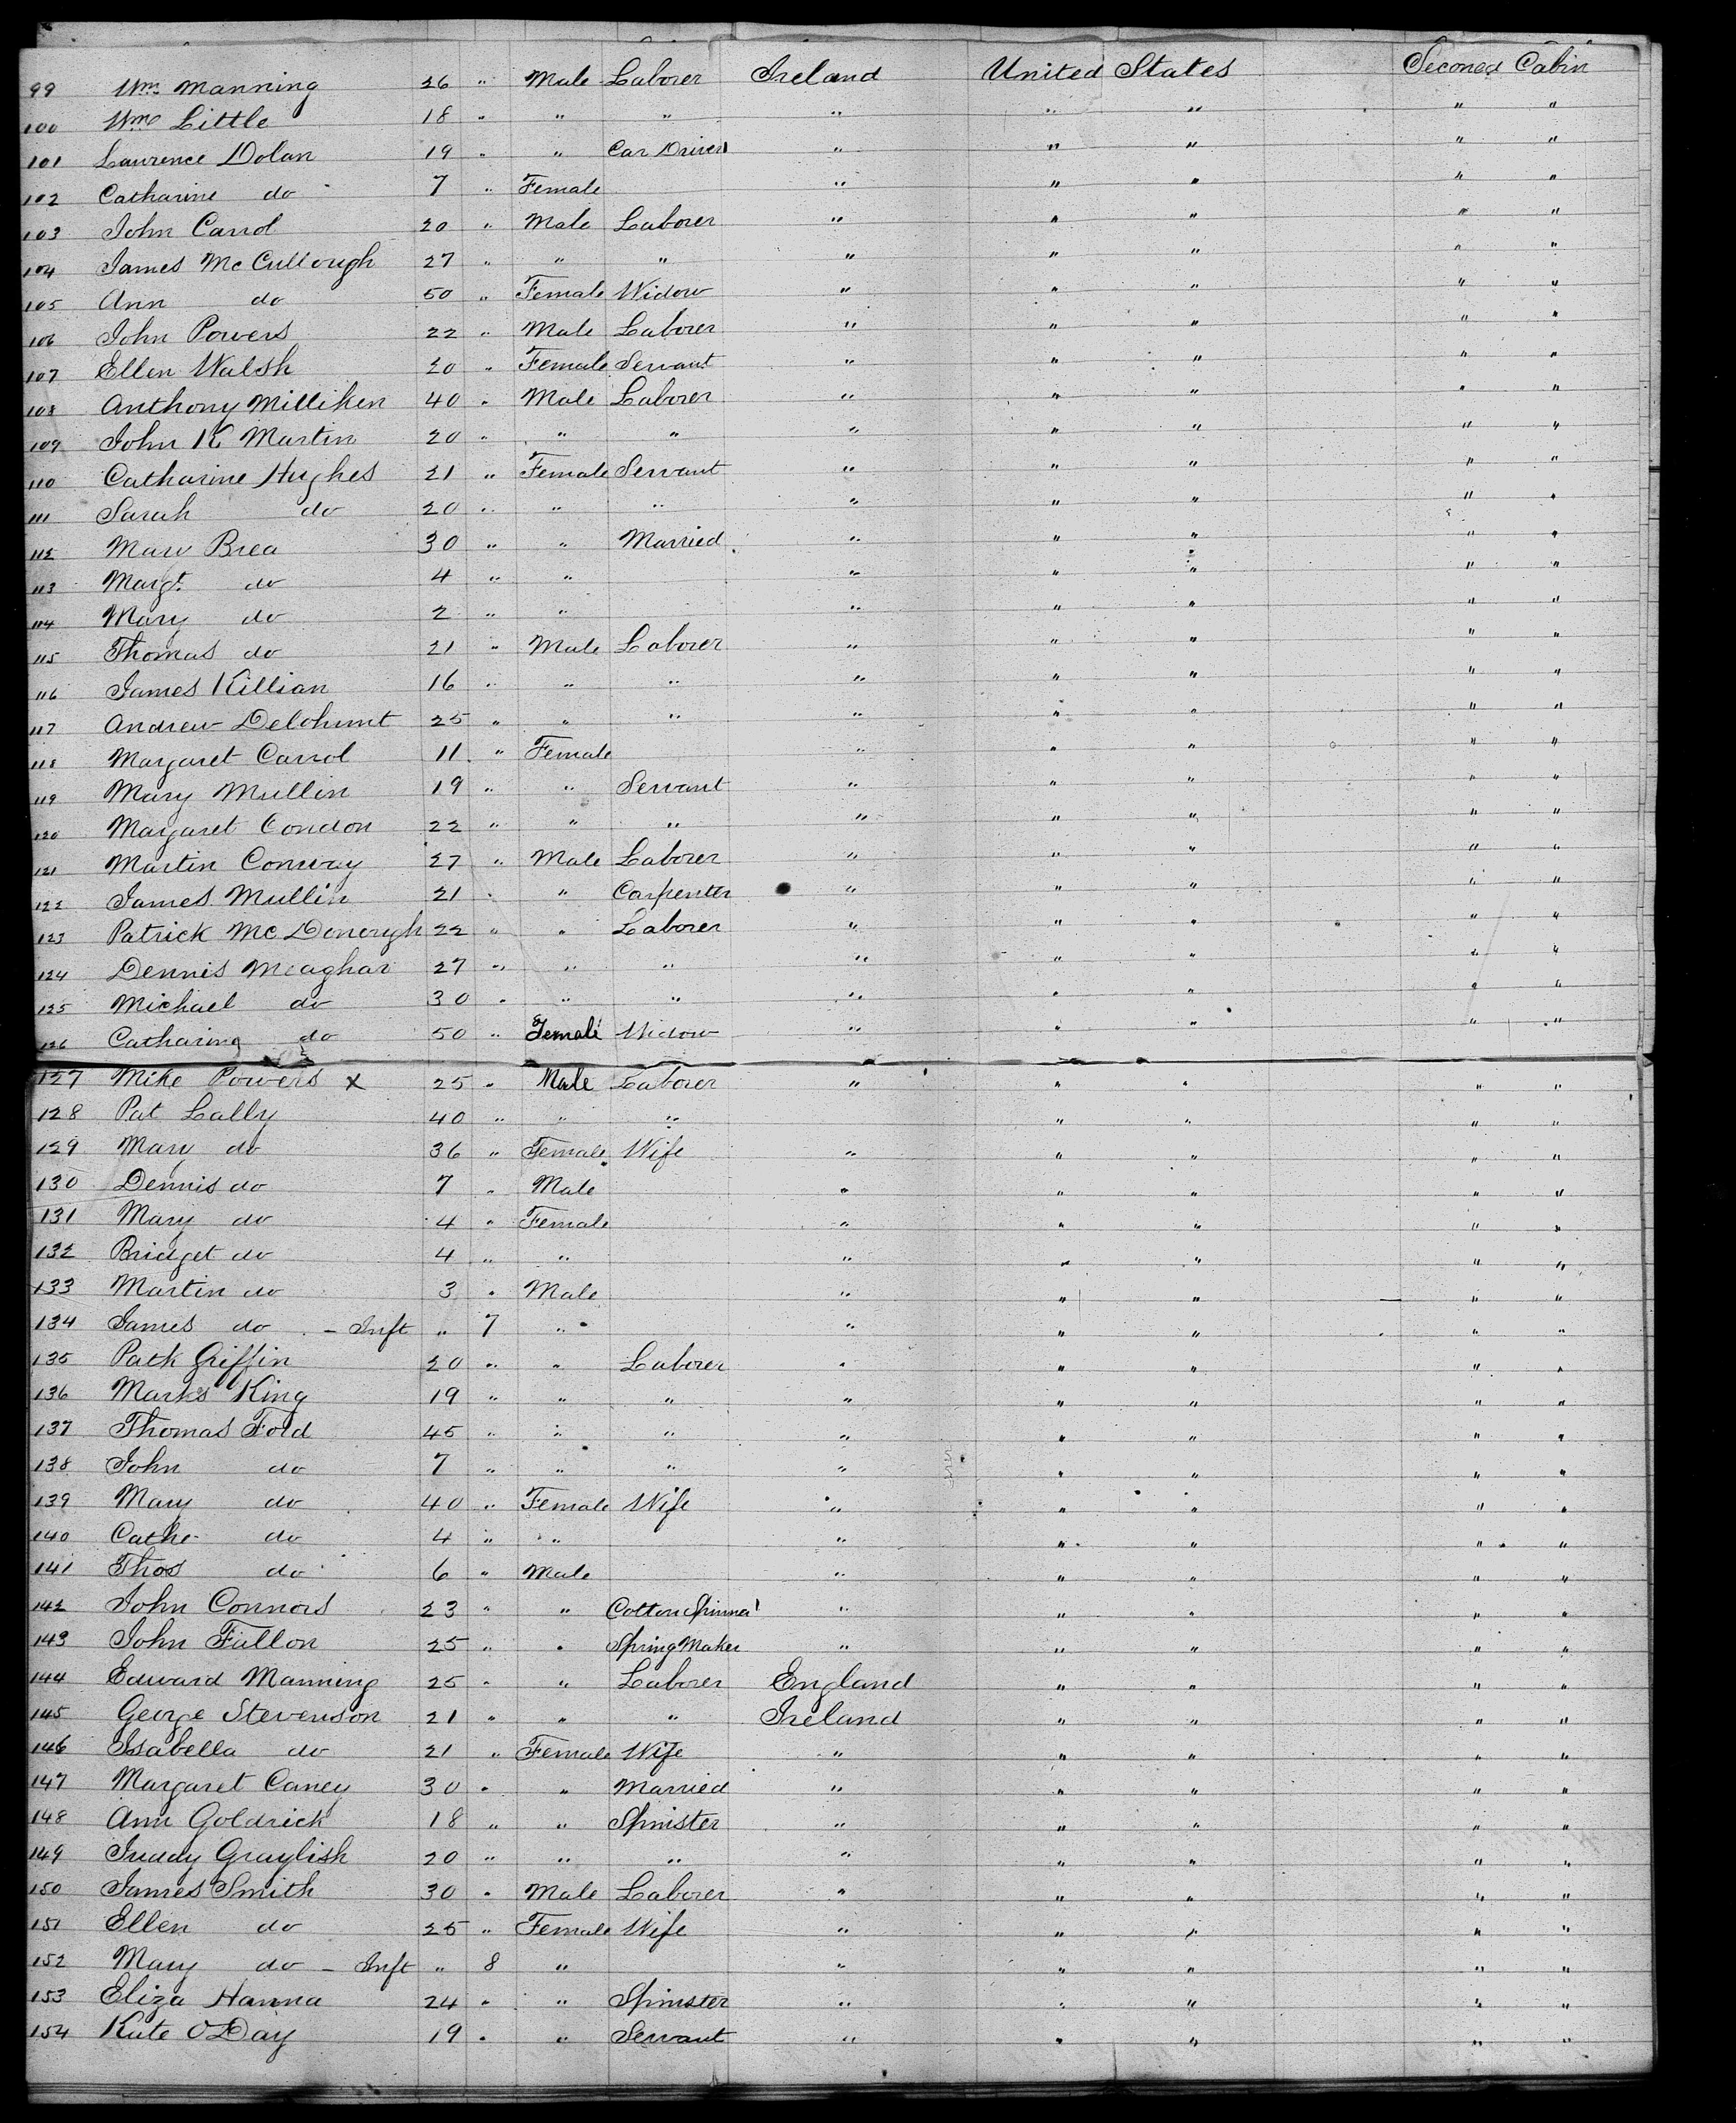 99 Wm Manning 26 " Male Laborer Ireland United States Second Cabin
100 Wm Little 18 " " " " " " " "
101 Laurence Dolan 19 " " Car Driver " " " " "
102 Catharine do 7 " Female " " " " "
103 John Carrol 20 " Male Laborer " " " " "
104 James McCullough 27 " " " " " " " "
105 Ann do 50 " Female Widow " " " " "
106 John Powers 22 " Male Laborer " " " " "
107 Ellen Walsh 20 " Female Servant " " " " "
108 Anthony Milliken 40 " Male Laborer " " " " "
109 John K Martin 20 " " " " " " " "
110 Catharine Hughes 21 " Female Servant " " " " "
111 Sarah do 20 " " " " " " " "
112 Mary Brea 30 " " Married " " " " "
113 Margt. do 4 " " " " " " "
114 Mary do 2 " " " " " " "
115 Thomas do 21 " Male Laborer " " " " "
116 James Killian 16 " " " " " " " "
117 Andrew Delohunt 25 " " " " " " " "
118 Margaret Carrol 11 " Female " " " " "
119 Mary Mullin 19 " " Servant " " " " "
120 Margaret Condon 22 " " " " " " " "
121 Martin Conway 27 " Male Laborer " " " " "
122 James Mullin 21 " " Carpenter " " " " "
123 Patrick McDonough 22 " " Laborer " " " " "
124 Dennis Meaghar 27 " " " " " " " "
125 Michael do 30 " " " " " " " "
126 Catharine do 50 " Female Widow " " " " "
127 Mike Powers x 25 " Male Laborer " " " " "
128 Pat Lally 40 " " " " " " " "
129 Mary do 36 " Female Wife " " " " "
130 Dennis do 7 " Male " " " " "
131 Mary do 4 " Female " " " " "
132 Bridget do 4 " " " " " " "
133 Martin do 3 " Male " " " " "
134 James do - Inft " 7 " " " " " "
135 Patk Griffin 20 " " Laborer " " " " "
136 Marks King 19 " " " " " " " "
137 Thomas Ford 45 " " " " " " " "
138 John do 7 " " " " " " " "
139 Mary do 40 " Female Wife " " " " "
140 Cathe do 4 " " " " " " "
141 Thos do 6 " Male " " " " "
142 John Connors 23 " " Cotton Spinner " " " " "
143 John Fallon 25 " " Spring Maker " " " " "
144 Edward Manning 25 " " Laborer England " " " "
145 George Stevenson 21 " " " Ireland " " " "
146 Isabella do 21 " Female Wife " " " " "
147 Margaret Caney 30 " " Married " " " " "
148 Ann Goldrick 18 " " Spinster " " " " "
149 Juday Graylish 20 " " " " " " " "
150 James Smith 30 " Male Laborer " " " " "
151 Ellen do 25 " Female Wife " " " " "
152 Mary do - Inft " 8 " " " " " "
153 Eliza Hanna 24 " " Spinster " " " " "
154 Kate O'Day 19 " " Servant " " " " "